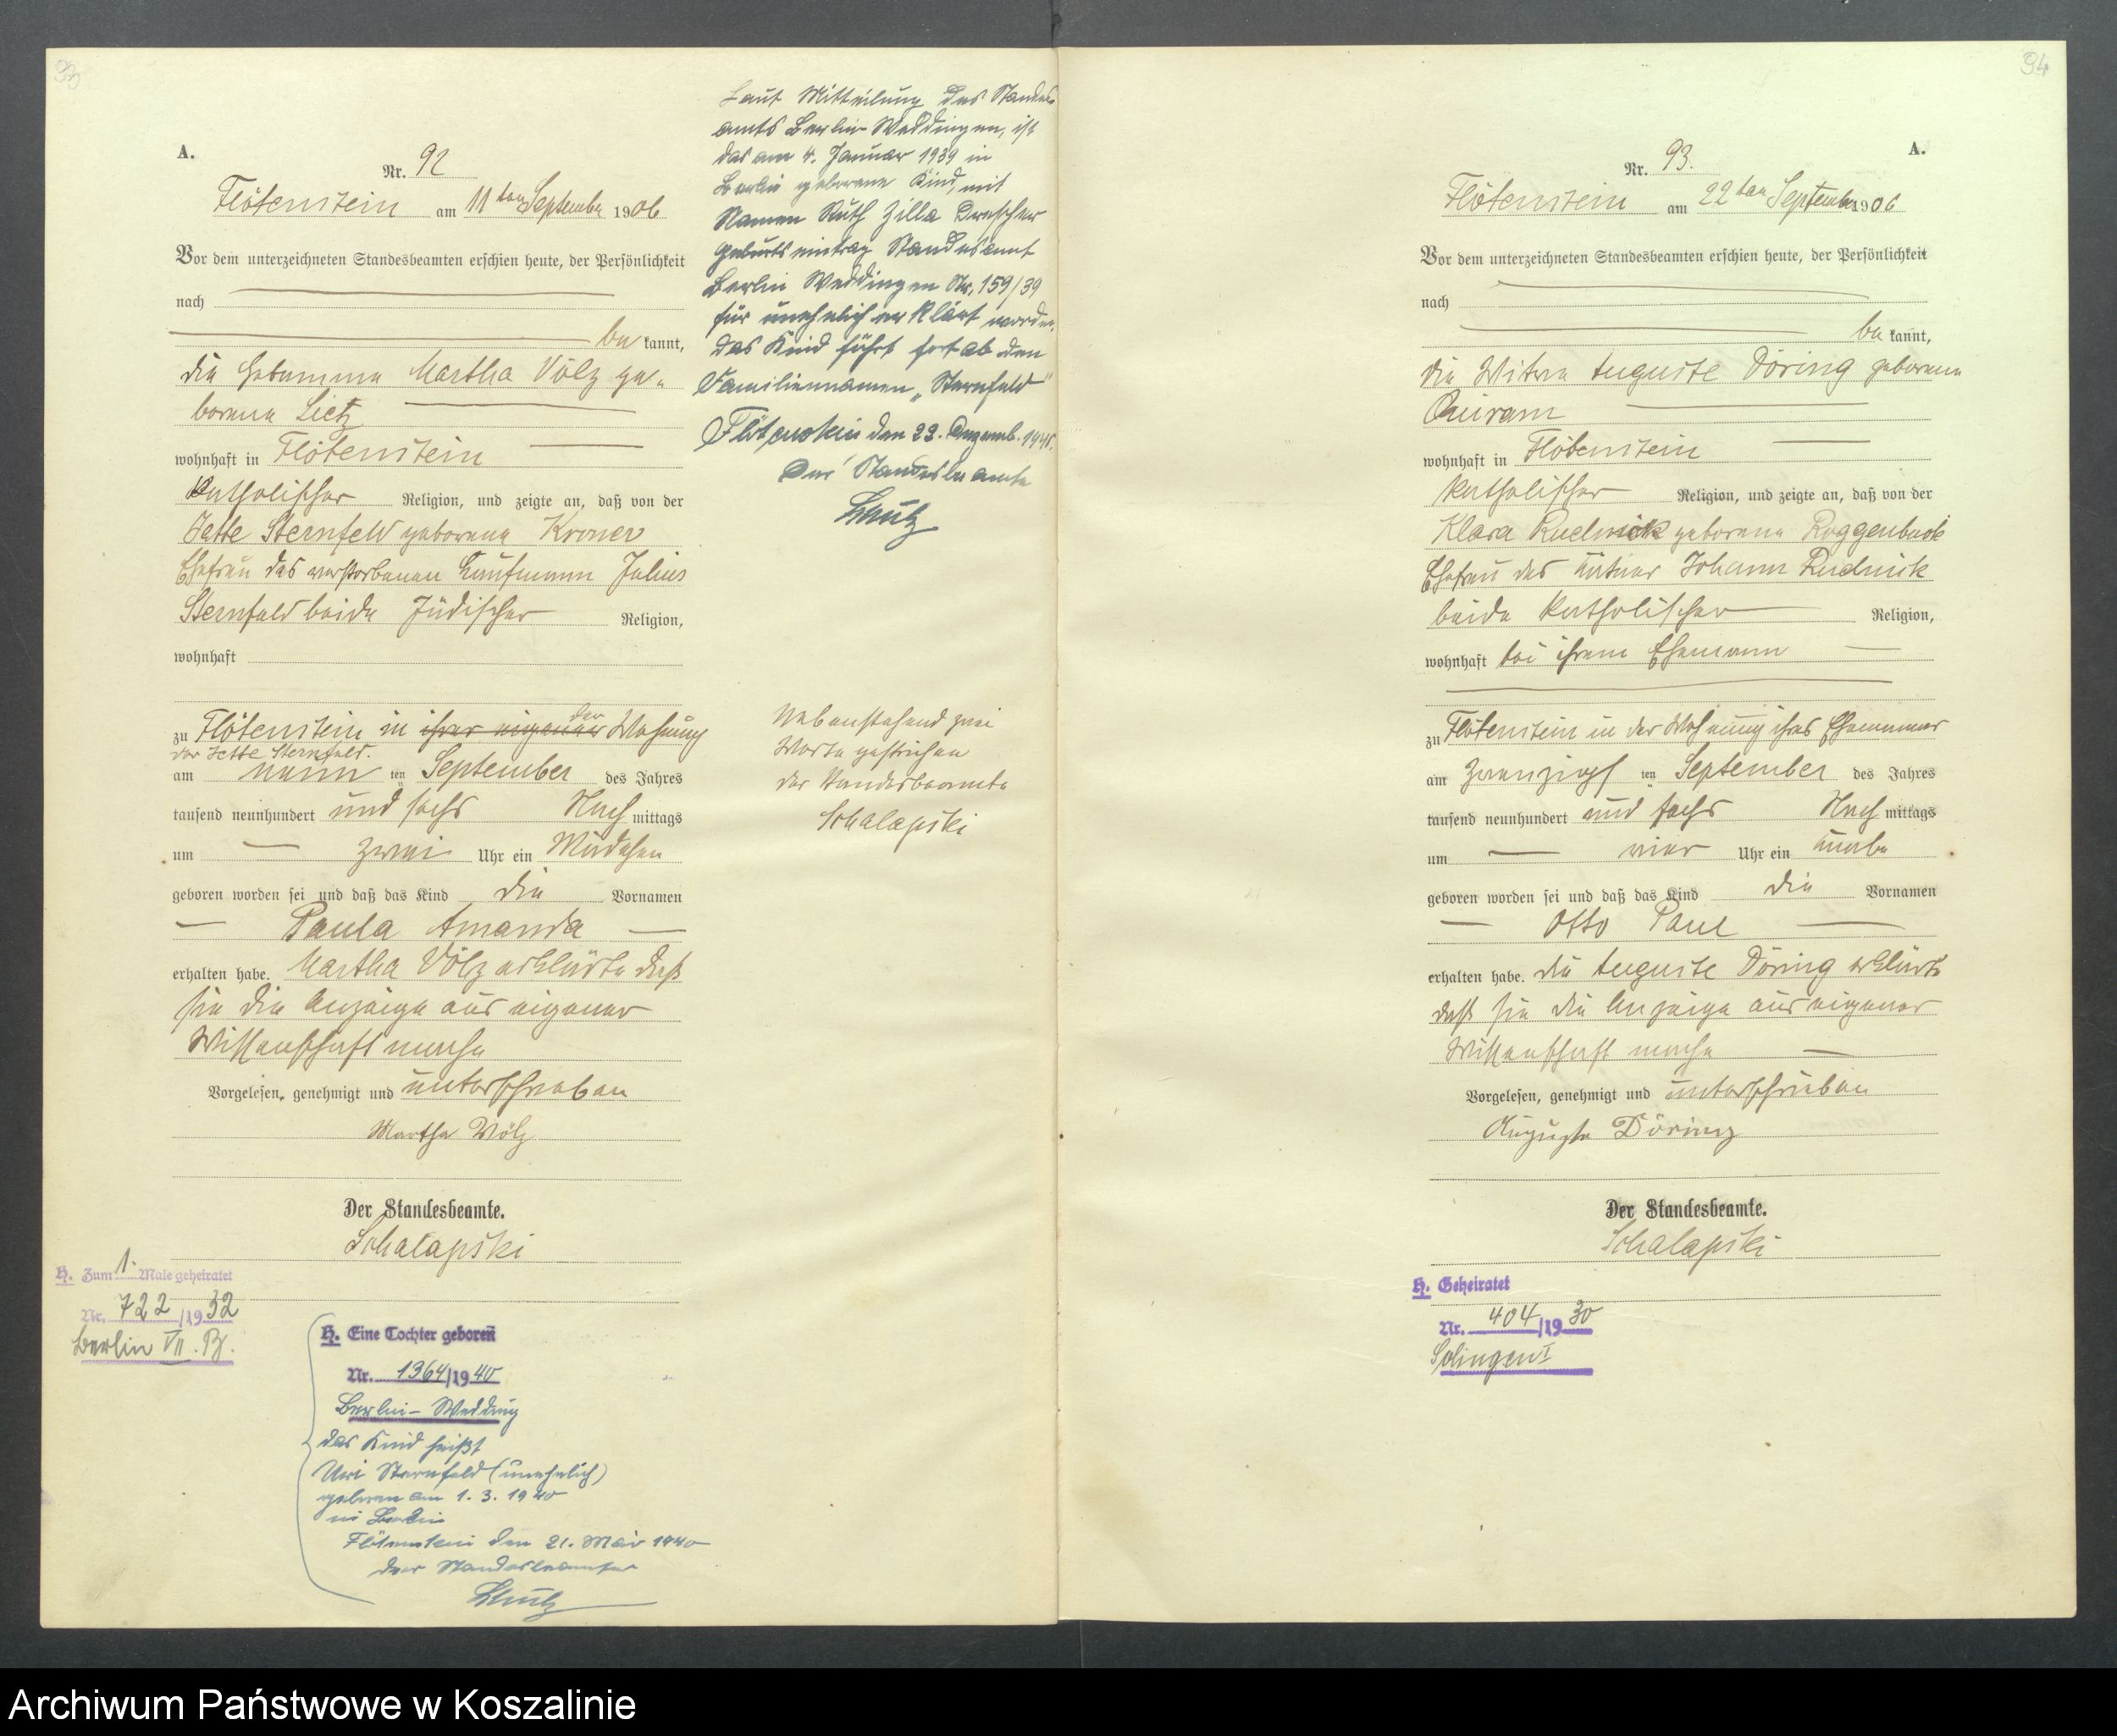 93
A.
Nr. 92
Flötenstein am 11ten September 1906
Vor dem unterzeichneten Standesbeamten erschien heute, der Persönlichkeit
nach
be kannt,
die Hebamme Martha Völz ge-
borene Lietz
wohnhaft in Flötenstein
katholischer Religion, und zeigte an, daß von der
Jette Sternfeld geborene Kroner
Ehefrau des verstorbenen Kaufmann Julius
Sternfeld beide Jüdischer Religion,
wohnhaft
zu Flötenstein in ihrer eigenen der Wohnung
der Jette Sternfeld.
am neun ten September des Jahres
tausend neunhundert und sechs Nach mittags
um zwei Uhr ein Mädchen
geboren worden sei und daß das Kind die Vornamen
Paula Amanda
erhalten habe. Martha Völz erklärte daß
sie die Anzeige aus eigener
Wissenschaft mache
Vorgelesen, genehmigt und unterschrieben
Martha Völz
Der Standesbeamte.
Schalapski
H. Zum 1. Male geheiratet
Nr. 722/1932
Berlin VII. B.
H. Eine Tochter geboren
Nr. 1364/1940
Berlin-Wedding
das Kind heißt
Uri Sternfeld (unehelich)
geboren am 1. 3. 1940
in Berlin
Flötenstein den 21. Mai 1940
der Standesbeamte
Laut Mitteilung des Standes
amts Berlin-Weddingen, ist
das am 4. Januar 1939 in
Berlin geborene Kind, mit
Namen Ruth Zilla Drescher
Geburtseintrag Standesamt
Berlin Weddingen Nr. 159/39
für unehelich erklärt worden.
das Kind führt fortab den
Familiennamen „Sternfeld"
Flötenstein den 22. Dezemb.
Der Standesbeamte
Nebenstehend zwei
Worte gestrichen
der Standesbeamte
Schalapski
94
A.
Nr. 93.
Flötenstein am 22ten September 1906
Vor dem unterzeichneten Standesbeamten erschien heute, der Persönlichkeit
nach
be kannt,
die Witwe Auguste Döring geborene
Quiram
wohnhaft in Flötenstein
katholischer Religion, und zeigte an, daß von der
Klara Rudnick geborene Roggenbuck
Ehefrau des Kätner Johann Rudnick
beide katholischer Religion,
wohnhaft bei ihrem Ehemann
zu Flötenstein in der Wohnung ihres Ehemannes
am zwanzigst ten September des Jahres
tausend neunhundert und sechs Nach mittags
um vier Uhr ein Knabe
geboren worden sei und daß das Kind die Vornamen
Otto Paul
erhalten habe. die Auguste Döring erklärte
daß sie die Anzeige aus eigener
Wissenschaft mache
Vorgelesen, genehmigt und unterschrieben
Auguste Döring
Der Standesbeamte.
Schalapski
H. Geheiratet
Nr. 404/1930
Solingen I
Archiwum Państwowe w Koszalinie